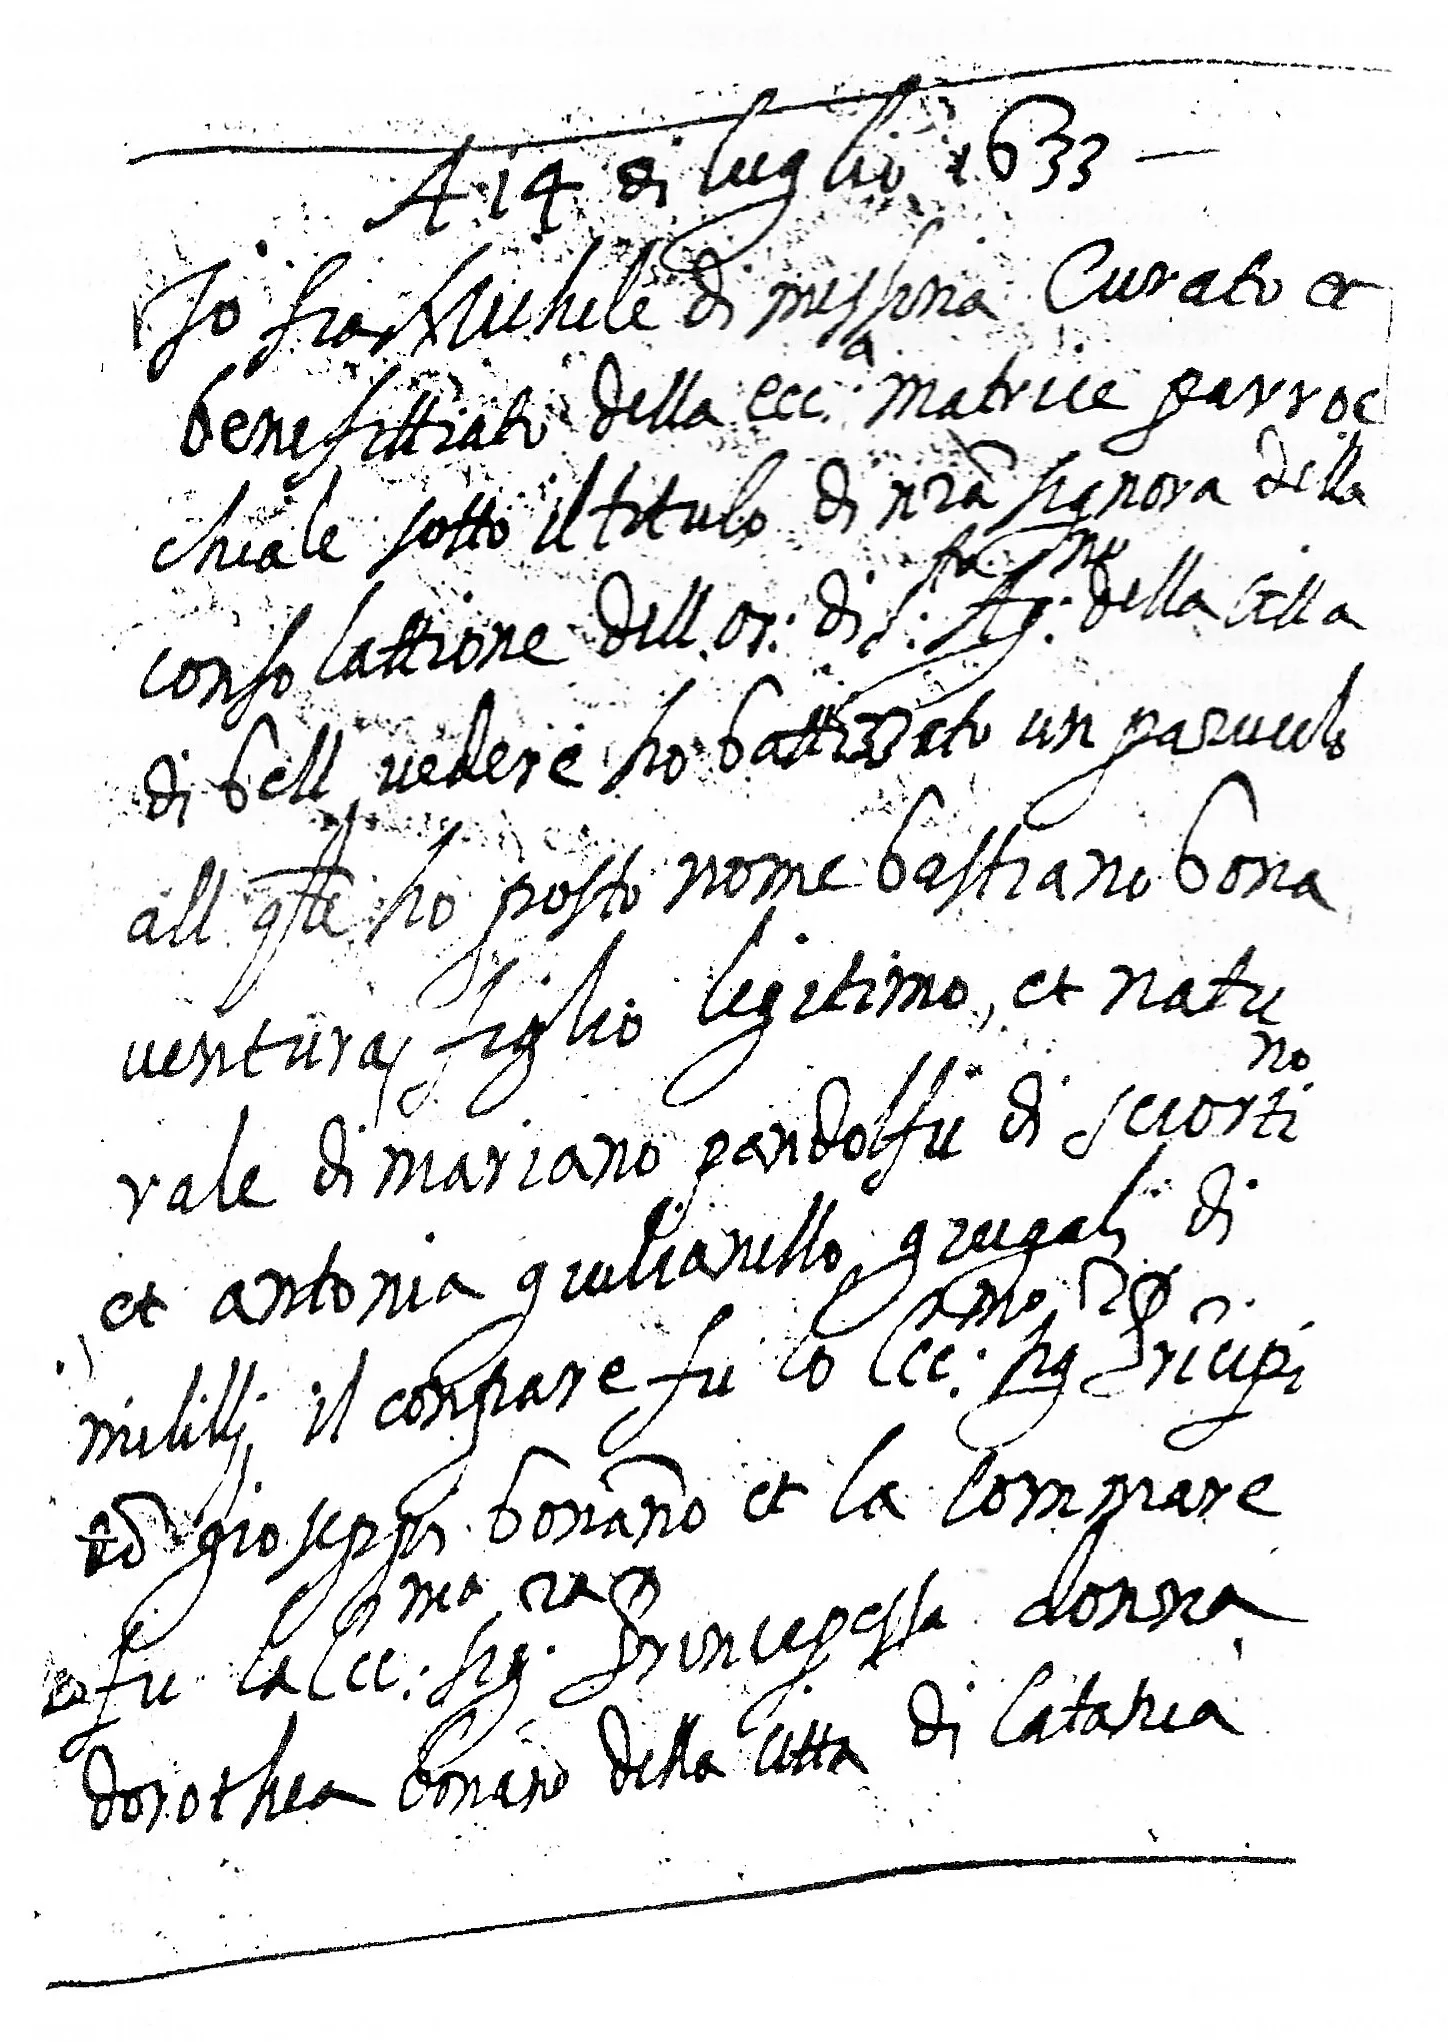 A 14 di luglio 1633
Io fra Michele di messina Curato et
benefittiato della ecc:a matrice parroc
chiale sotto il titulo di nrã signora della
consolattione dell or: di s: Ag:no della villa
di bell vedere ho battizzato un parvulo
all qle ho posto nome bastiano bona
ventura figlio legitimo, et natu
rale di mariano pandolfu di sciortino
et antonia giulianello giugali di
mililli il conpare fu lo Ecc:mo sig:re Pricipi
do gioseppi bonãno et la Commare
fu la Ecc:ma sig:ra Principessa donna
dorothea bonãno della Citta di Catania